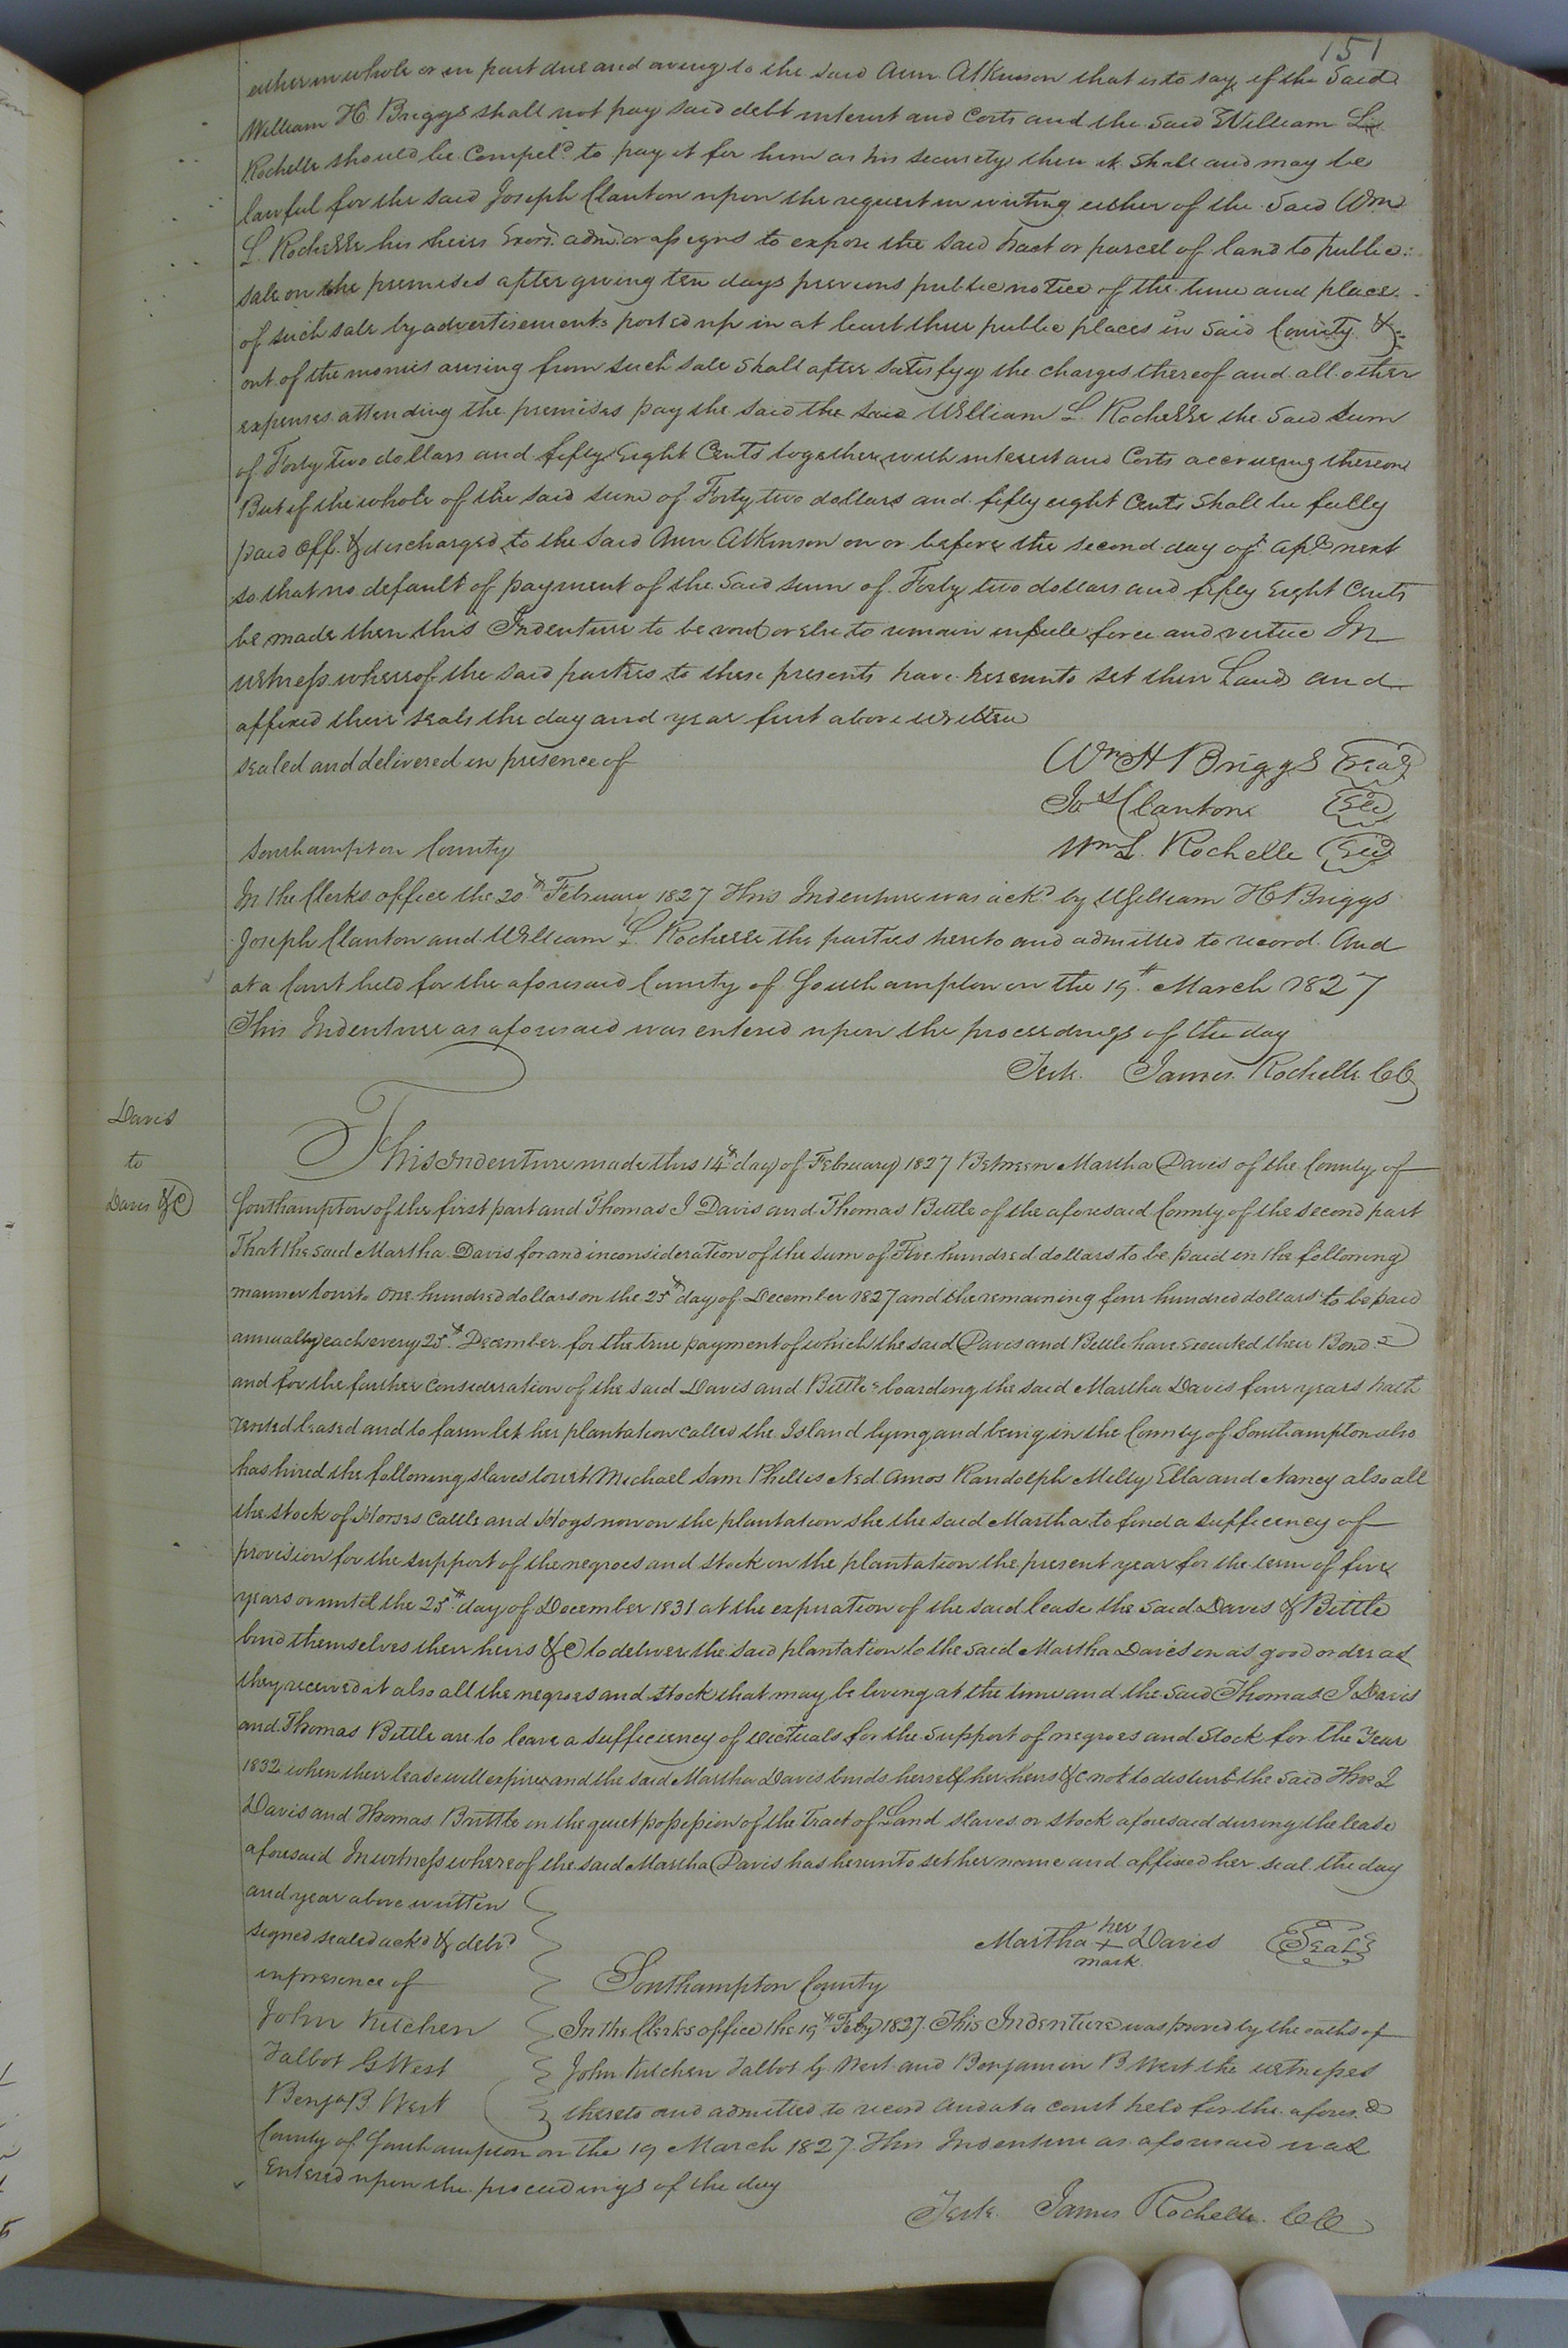 151
either in whole or in part due and owing to the said Ann Atkinson that is to say if the Said
William H. Briggs shall not pay said debt interest and Costs and the Said William L.
Rochelle should be Compeld to pay it for him as his security then it Shall and may be
lawful for the said Joseph Clanton upon the request in writing either of the Said Wm
L. Rochelle his heirs Exors. admr. or assigns to expose the said tract or parcel of land to public
sale on the premises after giving ten days previous public notice of the time and place
of such sale by advertisements posted up in at least three public places in said County &
out of the monies arising from such sale Shall after satisfyg the charges thereof and all other
expenses attending the premises pay the said the said William L. Rochelle the Said sum
of Forty Two dollars and fifty Eight Cents together with interest and Costs accrueing thereon
But if the whole of the said sum of Forty two dollars and fifty eight Cents Shall be fully
paid off & discharged to the Said Ann Atkinson on or before the second day of Apl next
so that no default of payment of the Said sum of Forty two dollars and fifty Eight Cents
be made then this Indenture to be void or else to remain in full force and vertue In
witness whereof the said parties to these presents have hereunto set their hands and
affixed their seals the day and year first above written
sealed and delivered in presence of
Wm H Briggs Seal
Jos Clanton Seal
Wm L. Rochelle Seal
Southampton County
In the Clerks office the 20th February 1827 This Indenture was ackd by William H Briggs
Joseph Clanton and William L. Rochelle the parties hereto and admitted to record. And
at a Court held for the aforesaid County of Southampton on the 19th March 1827
This Indenture as aforesaid was entered upon the proceedings of the day
Teste. James Rochelle CC
Davis
to
Davis &C
This Indenture made this 14th day of February 1827 Between Martha Davis of the County of
Southampton of the first part and Thomas J Davis and Thomas Bittle of the aforesaid County of the second part
That the said Martha Davis for and in consideration of the sum of Five hundred dollars to be paid in the following
manner towit. One hundred dollars on the 25th day of December 1827 and the remaining four hundred dollars to be paid
annually each every 25th December for the true payment of which the said Davis and Bittle have executed their Bond
and for the further Consideration of the said Davis and Bittle boarding the said Martha Davis four years hath
rented leased and to farm let her plantation called the Island lying and being in the County of Southampton also
has hired the following slaves towit Michael Sam Phillis Ned Amos Randolph Milly Ella and Nancy also all
the stock of Horses Cattle and Hogs now on the plantation she the said Martha to find a sufficiency of
provision for the support of the negroes and stock on the plantation the present year for the term of five
years or until the 25th day of December 1831 at the expiration of the said lease the Said Davis & Bittle
bind themselves their heirs &C to deliver the said plantation to the said Martha Davis in as good order as
they received it also all the negroes and stock that may be living at the time and the Said Thomas J Davis
and Thomas Bittle are to leave a sufficiency of victuals for the Support of negroes and Stock for the Year
1832 when their lease will expire and the said Martha Davis binds herself her heirs &c not to disturb the said Thos J
Davis and Thomas Brittle in the quiet possession of the Tract of Land slaves or stock aforesaid during the lease
aforesaid In witness whereof the said Martha Davis has hereunto set her name and affixed her seal the day
and year above written
signed sealed ackd & deld
in presence of
John Kitchen
Talbot G West
Benja B. West
her
Martha + Davis Seal
mark
Southampton County
In the Clerks office the 19th Feby 1827. This Indenture was proved by the oaths of
John Kitchen Talbot G. West and Benjamin B West the witnesses
thereto and admitted to record And at a court held for the afores.d
County of Southampton on the 19 March 1827. This Indenture as aforesaid was
Entered upon the proceedings of the day
Teste. James Rochelle. CC